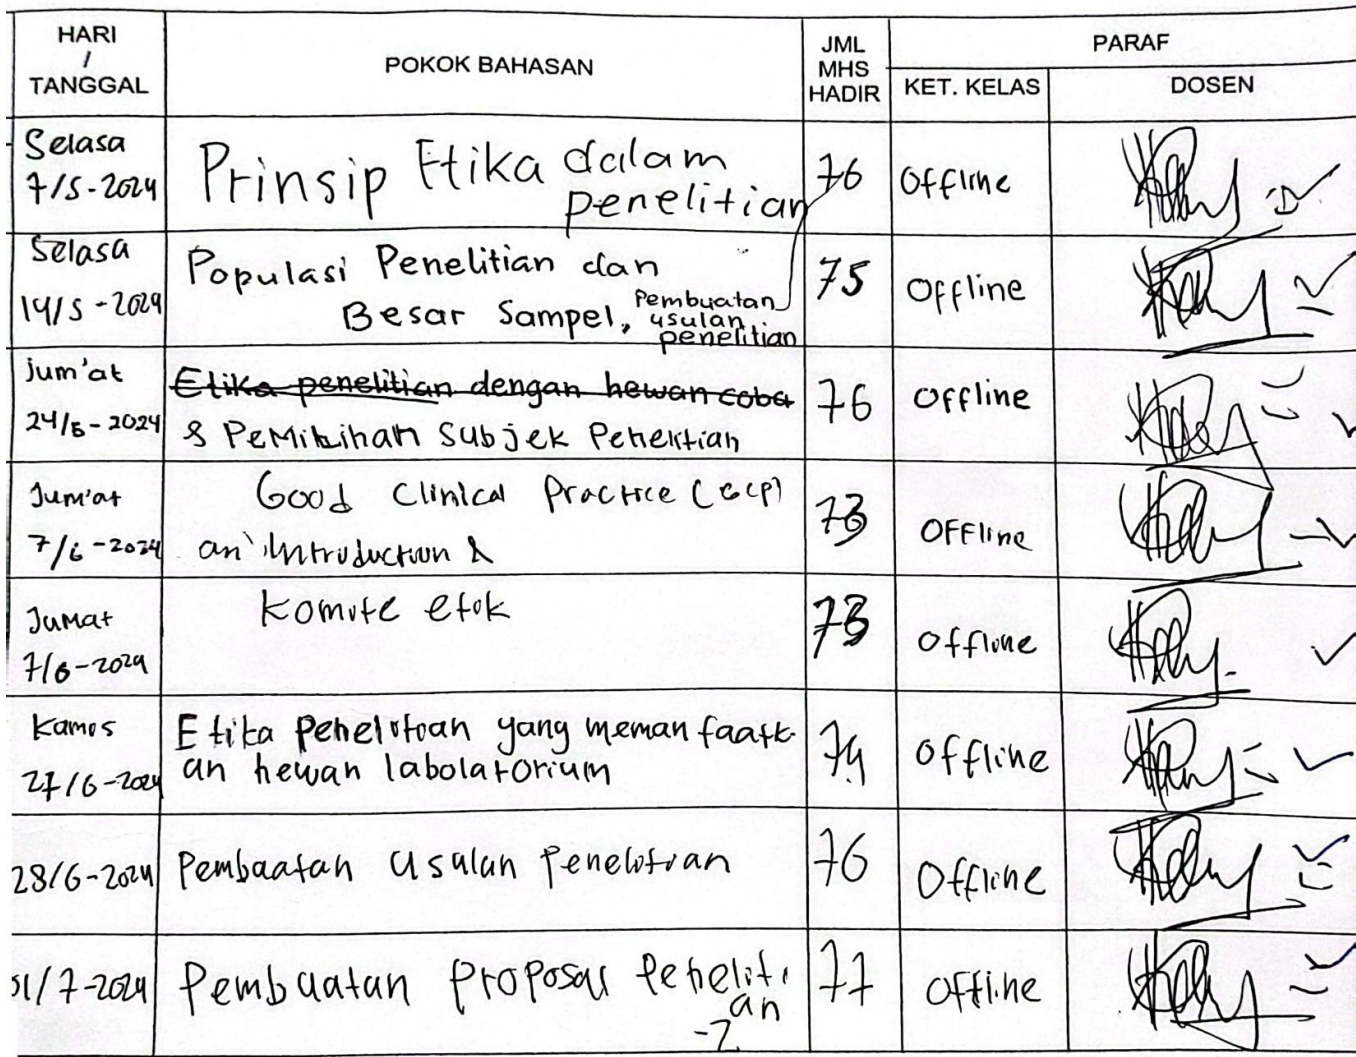 HARI / TANGGAL
POKOK BAHASAN
JML MHS HADIR
PARAF
KET. KELAS
DOSEN
Selasa
7/5-2024
Prinsip Etika dalam
penelitian
76
Offline
Selasa
14/5-2024
Populasi Penelitian dan
Besar Sampel, Pembuatan
usulan
penelitian
75
Offline
jum'at
24/5-2024
Etika penelitian dengan hewan coba
& Pemilihan Subjek Penelitian
76
Offline
Jum'at
7/6-2024
Good Clinical Practice (GCP)
an Introduction &
73
Offline
Jumat
7/6-2024
Komite etik
73
Offline
Kamis
27/6-2024
Etika penelitian yang memanfaatk
an hewan labolatorium
74
Offline
28/6-2024
Pembuatan usulan Penelitian
76
Offline
/7-2024
Pembuatan proposal Peneliti
an
-2
77
Offline